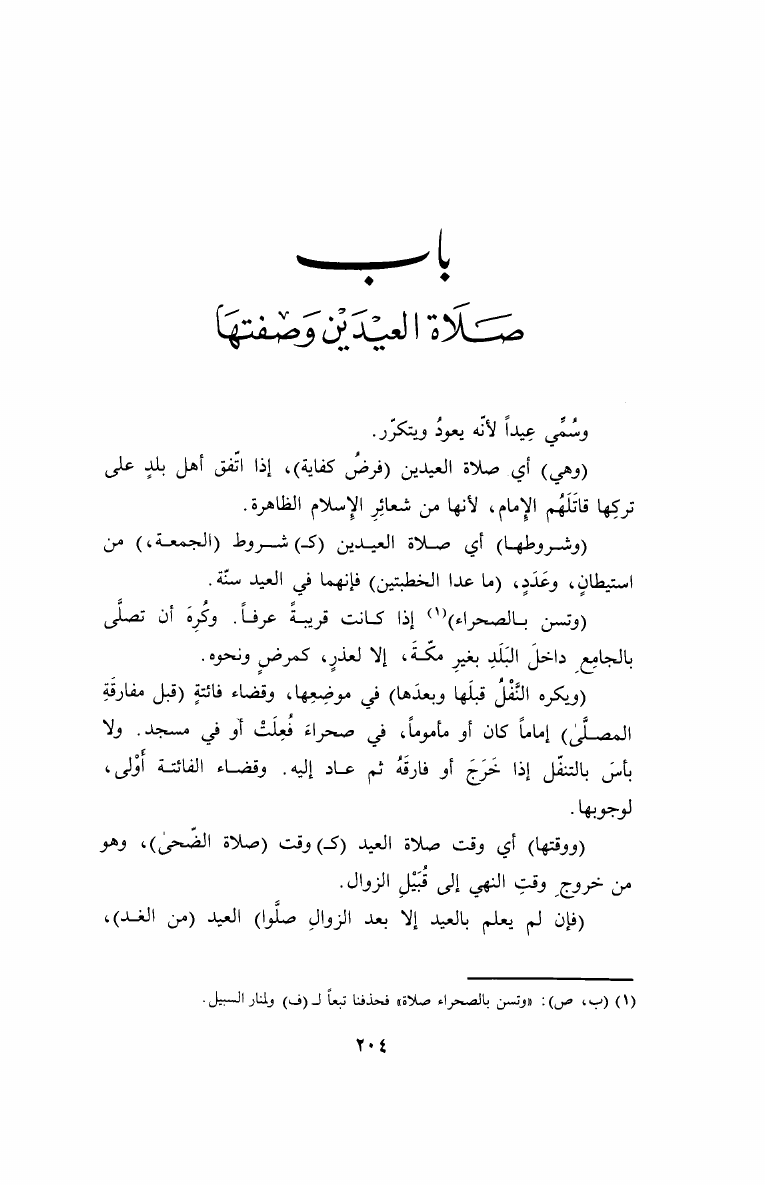 باب
صَلَاة العِيْدَيْن وَصفتهَا
وسُمِّي عِيداً لأنّه يعودُ ويتكرّر.
(وهي) أي صلاة العيدين (فرضُ كفاية)، إذا اتّفق أهل بلدٍ على
تركِها قاتَلَهُم الإمام، لأنها من شعائرِ الإسلام الظاهرة.
(وشروطها) أي صلاة العيدين (كـ) شروط (الجمعة،) من
استيطانٍ، وعَدَدٍ، (ما عدا الخطبتين) فإنهما في العيد سنّة.
(وتسن بالصحراء)(١) إذا كانت قريبةً عرفاً. وكُرِهَ أن تصلَّى
بالجامِعِ داخلَ البَلَدِ بغيرِ مكّةَ، إلا لعذرٍ، كمرضٍ ونحوه.
(ويكره النَّفْلُ قبلَها وبعدَها) في موضِعِها، وقضاء فائتةٍ (قبل مفارقَةِ
المصلَّى) إماماً كان أو مأموماً، في صحراءَ فُعِلَتْ أو في مسجد. ولا
بأسَ بالتنفّل إذا خَرَجَ أو فارقَهُ ثم عاد إليه. وقضاء الفائتة أَوْلى،
لوجوبها.
(ووقتها) أي وقت صلاة العيد (كـ) وقت (صلاة الضّحىٰ)، وهو
من خروجِ وقتِ النهي إلى قُبَيْلِ الزوال.
(فإن لم يعلم بالعيد إلا بعد الزوالِ صلَّوا) العيد (من الغد)،
(١) (ب، ص): «وتسن بالصحراء صلاة» فحذفنا تبعاً لـ (ف) ولمنار السبيل.
٢٠٤